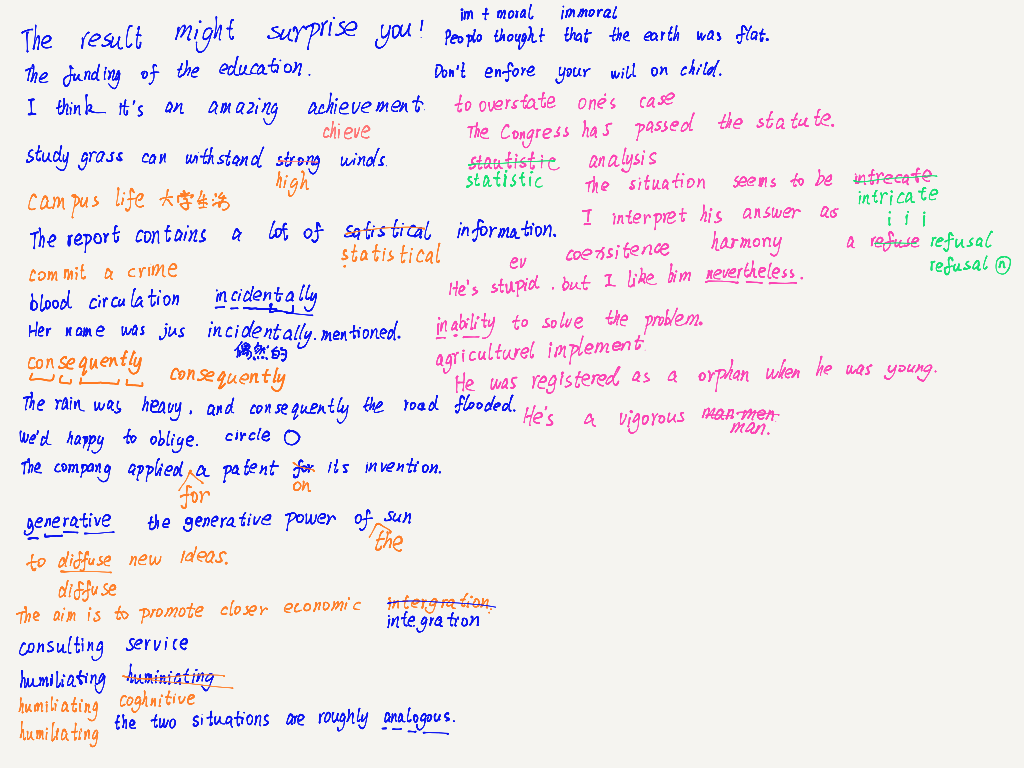 The result might surprise you!
The funding of the education.
I think it's an amazing achievement
chieve
study grass can withstand strong winds.
high
campus life 大学生活
The report contains a lot of satistical information.
statistical
commit a crime
blood circulation incidentally
Her name was jus incidentally mentioned.
偶然的
consequently consequently
The rain was heavy, and consequently the road flooded.
We'd happy to oblige. circle
The company applied a patent for its invention.
for on
generative the generative power of sun
the
to diffuse new ideas.
diffuse
The aim is to promote closer economic intergration.
integration
consulting service
humiliating huminiating
humiliating coghnitive
humiliating
the two situations are roughly analogous.
im + moral immoral
People thought that the earth was flat.
Don't enfore your will on child.
to overstate one's case
The Congress has passed the statute.
stautistic analysis
statistic
The situation seems to be intrecate
intricate
i i i
I interpret his answer as a refuse refusal
refusal n
ev coexsitence harmony
He's stupid. but I like him nevertheless.
inability to solve the problem.
agriculturel implement
He was registered as a orphan when he was young.
He's a vigorous man men
man.